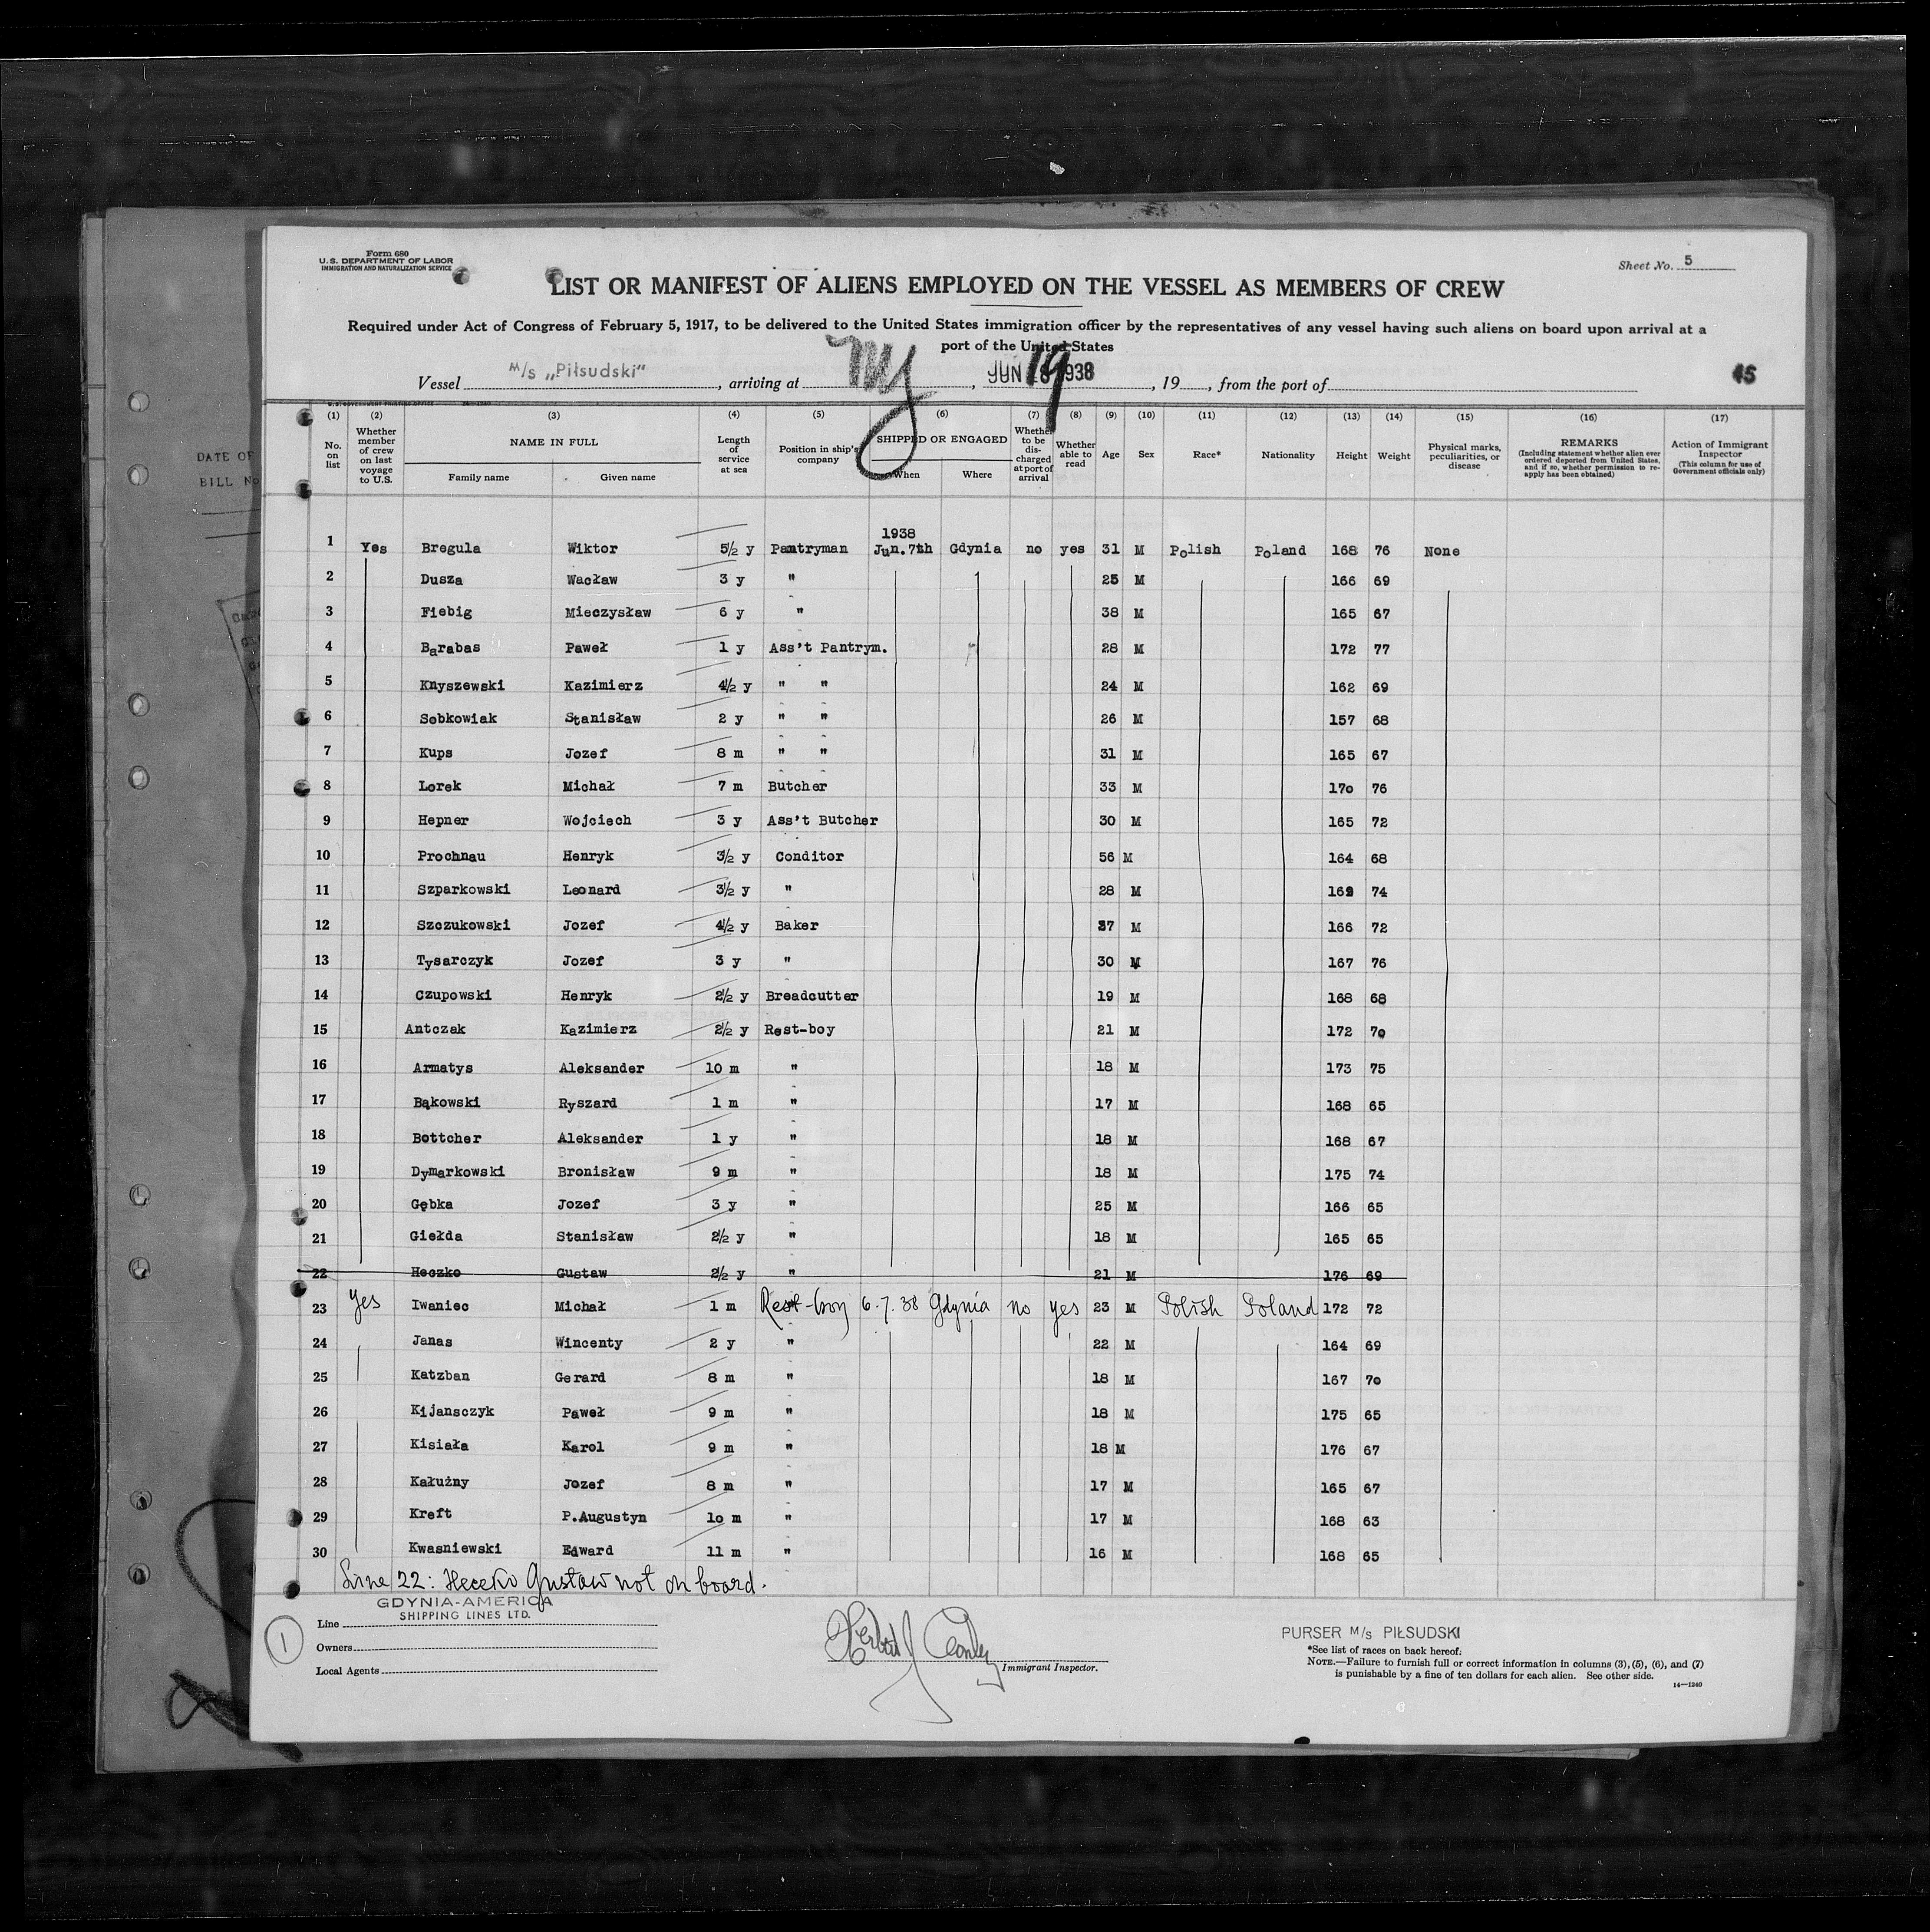 Form 680
U.S. DEPARTMENT OF LABOR
IMMIGRATION AND NATURALIZATION SERVICE
Sheet No. 5
LIST OR MANIFEST OF ALIENS EMPLOYED ON THE VESSEL AS MEMBERS OF CREW
Required under Act of Congress of February 5, 1917, to be delivered to the United States immigration officer by the representatives of any vessel having such aliens on board upon arrival at a
port of the United States
Vessel M/s „Piłsudski", arriving at NY, JUN 19 1938, 19, from the port of
45
DATE OF
BILL No
(1) (2) (3) (4) (5) (6) (7) (8) (9) (10) (11) (12) (13) (14) (15) (16) (17)
No. on list
Whether member of crew on last voyage to U.S.
NAME IN FULL
Family name Given name
Length of service at sea
Position in ship's company
SHIPPED OR ENGAGED
When Where
Whether to be discharged at port of arrival
Whether able to read
Age Sex Race* Nationality Height Weight
Physical marks, peculiarities, or disease
REMARKS
(Including statement whether alien ever ordered deported from United States, and if so, whether permission to reapply has been obtained)
Action of Immigrant Inspector
(This column for use of Government officials only)
1938
1 Yes Bregula Wiktor 5½ y Pantryman Jun. 7th Gdynia no yes 31 M Polish Poland 168 76 None
2 Dusza Wacław 3 y " 25 M 166 69
3 Fiebig Mieczysław 6 y " 38 M 165 67
4 Barabas Paweł 1 y Ass't Pantrym. 28 M 172 77
5 Knyszewski Kazimierz 4½ y " " 24 M 162 69
6 Sobkowiak Stanisław 2 y " " 26 M 157 68
7 Kups Jozef 8 m " " 31 M 165 67
8 Lorek Michał 7 m Butcher 33 M 170 76
9 Hepner Wojciech 3 y Ass't Butcher 30 M 165 72
10 Prochnau Henryk 3½ y Conditor 56 M 164 68
11 Szparkowski Leonard 3½ y " 28 M 169 74
12 Szczukowski Jozef 4½ y Baker 37 M 166 72
13 Tysarczyk Jozef 3 y " 30 M 167 76
14 Czupowski Henryk 2½ y Breadcutter 19 M 168 68
15 Antczak Kazimierz 2½ y Rest-boy 21 M 172 70
16 Armatys Aleksander 10 m " 18 M 173 75
17 Bąkowski Ryszard 1 m " 17 M 168 65
18 Bottcher Aleksander 1 y " 18 M 168 67
19 Dymarkowski Bronisław 9 m " 18 M 175 74
20 Gębka Jozef 3 y " 25 M 166 65
21 Giełda Stanisław 2½ y " 18 M 165 65
22 Heczko Gustaw 2½ y " 21 M 176 69
23 yes Iwaniec Michał 1 m Rest-boy 6.7.38 Gdynia no yes 23 M Polish Poland 172 72
24 Janas Wincenty 2 y " 22 M 164 69
25 Katzban Gerard 8 m " 18 M 167 70
26 Kijansczyk Paweł 9 m " 18 M 175 65
27 Kisiała Karol 9 m " 18 M 176 67
28 Kałużny Jozef 8 m " 17 M 165 67
29 Kreft P.Augustyn 10 m " 17 M 168 63
30 Kwasniewski Edward 11 m " 16 M 168 65
Line 22: Heczko Gustaw not on board.
GDYNIA-AMERICA
SHIPPING LINES LTD.
1
Line
Owners
Local Agents
Immigrant Inspector.
PURSER M/s PIŁSUDSKI
*See list of races on back hereof.
NOTE.—Failure to furnish full or correct information in columns (3), (5), (6), and (7)
is punishable by a fine of ten dollars for each alien. See other side.
14—1240